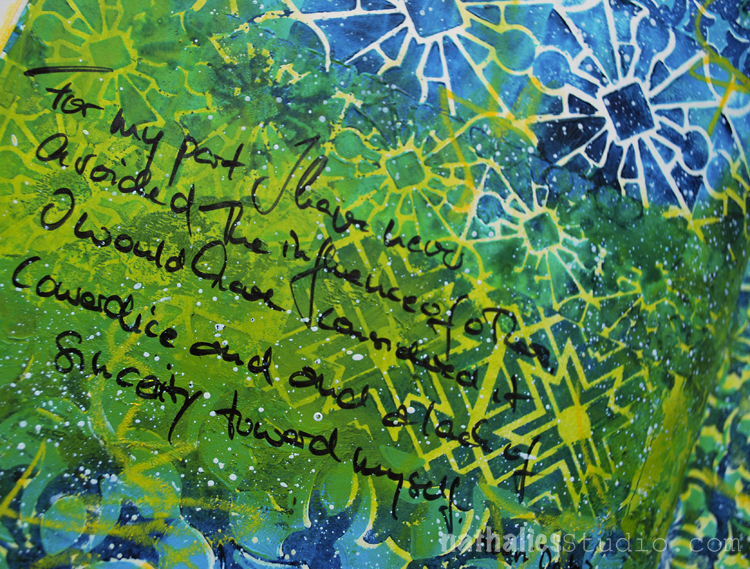 For my part I have never
avoided the influence of others
I would have considered it
Cowardice and and a lack of
Sincerity toward myself.
nathaliesstudio.com